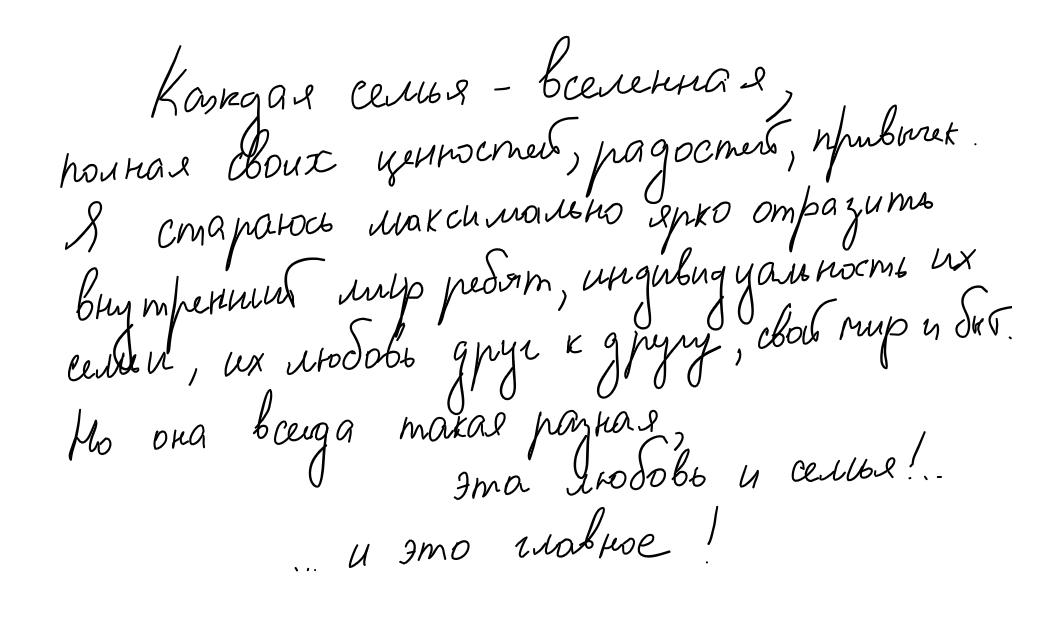 Каждая семья - вселенная,
полная своих ценностей, радостей, привычек.
Я стараюсь максимально ярко отразить
внутренний мир ребят, индивидуальность их
семьи, их любовь друг к другу, свой мир и быт.
Но она всегда такая разная,
эта любовь и семья!..
... и это главное!